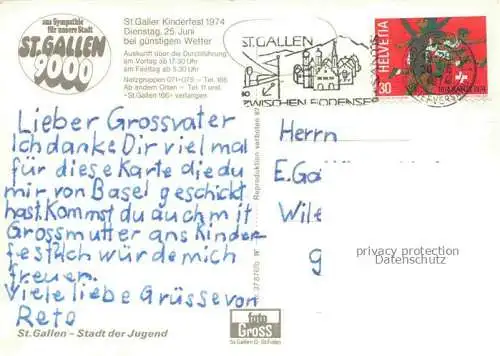 aus Sympathie
für unsere Stadt
ST. GALLEN
9000
St. Galler Kinderfest 1974
Dienstag, 25. Juni
bei günstigem Wetter
Auskunft über die Durchführung
am Vortag ab 17.30 Uhr
am Festtag ab 5.30 Uhr
Netzgruppen 071-073 – Tel. 166
Ab andern Orten – Tel. 11 und
«St. Gallen 166» verlangen
ST. GALLEN
ZWISCHEN BODENSEE
HELVETIA
30
Lieber Grossvater
Ich danke Dir viel mal
für diese Karte die du
mir von Basel geschickt
hast. Kommst du auch mit
Grossmutter ans Kinder
fest Ich würde mich
freuen.
Viele liebe Grüsse von
Reto
St. Gallen – Stadt der Jugend
Reproduktion verboten
foto
GROSS
St. Gallen
Herrn
E. Ga
Wile
9
privacy protection
Datenschutz